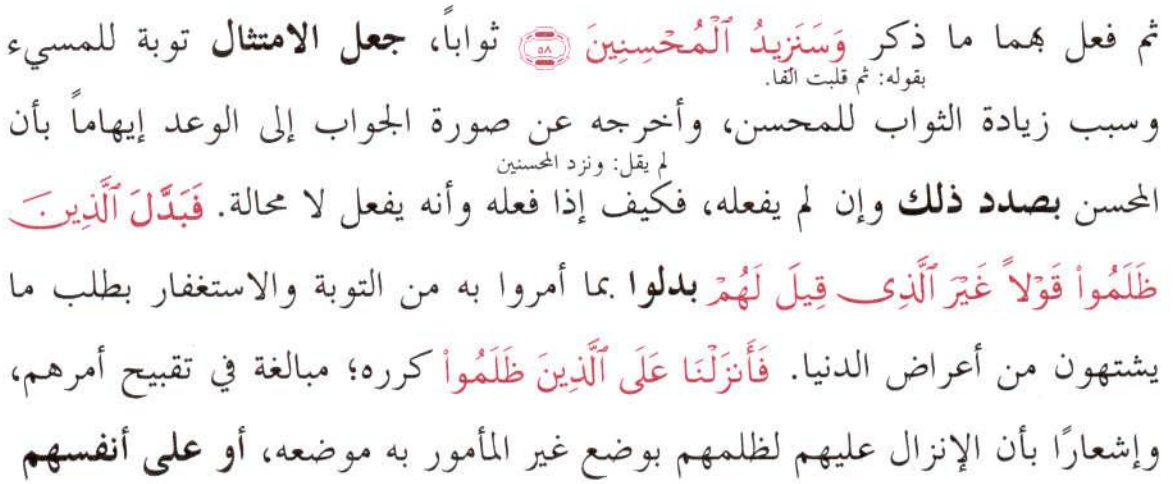 ثم فعل بهما ما ذكر وَسَنَزِيدُ ٱلْمُحْسِنِينَ ۝٥٨ ثواباً، جعل الامتثال توبة للمسيء
بقوله: ثم قلبت الفا.
وسبب زيادة الثواب للمحسن، وأخرجه عن صورة الجواب إلى الوعد إيهاماً بأن
لم يقل: ونزد المحسنين
المحسن بصدد ذلك وإن لم يفعله، فكيف إذا فعله وأنه يفعل لا محالة. فَبَدَّلَ ٱلَّذِينَ
ظَلَمُوا۟ قَوْلاً غَيْرَ ٱلَّذِى قِيلَ لَهُمْ بدلوا بما أمروا به من التوبة والاستغفار بطلب ما
يشتهون من أعراض الدنيا. فَأَنزَلْنَا عَلَى ٱلَّذِينَ ظَلَمُوا۟ كرره؛ مبالغة في تقبيح أمرهم،
وإشعارًا بأن الإنزال عليهم لظلمهم بوضع غير المأمور به موضعه، أو على أنفسهم